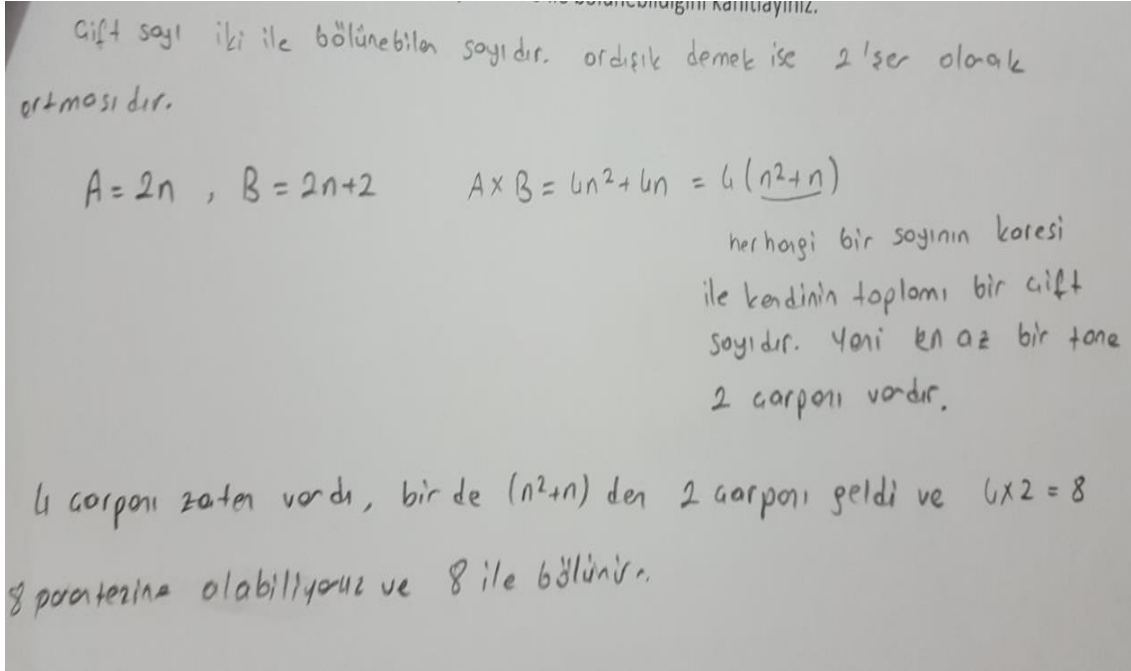 kanıtlayınız.
Çift sayı iki ile bölünebilen sayıdır. ardışık demek ise 2'şer olarak
artmasıdır.
A = 2n , B = 2n+2 A x B = 4n²+4n = 4(n²+n)
herhangi bir sayının karesi
ile kendinin toplamı bir çift
sayıdır. Yani en az bir tane
2 çarpanı vardır.
4 çarpanı zaten vardı, bir de (n²+n) den 2 çarpanı geldi ve 4x2 = 8
8 parantezine alabiliyoruz ve 8 ile bölünür.